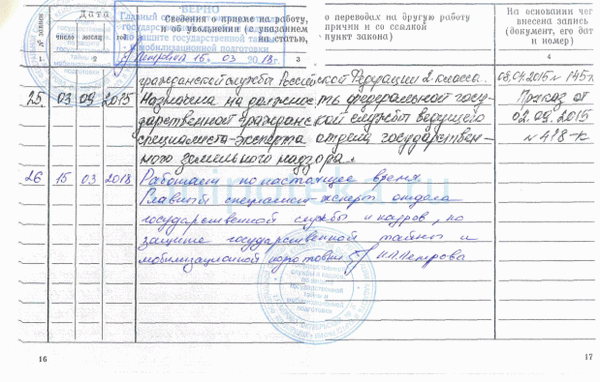 № записи
Дата
число
месяц
год
Сведения о приеме на работу,
и об увольнении (с указанием
статью,
о переводах на другую работу
причин и со ссылкой
пункт закона)
На основании чего
внесена запись
(документ, его дата
и номер)
1
2
4
ВЕРНО
Главный
государственной
по защите государственной
мобилизационной подготовки
16. 03 2018г.
гражданской службы Российской Федерации 2 класса.
08.04.2015 № 145-
25 03 09 2015 Назначена на должность федеральной госу-
дарственной гражданской службы ведущего
специалиста-эксперта отдела государствен-
ного земельного надзора.
Приказ от
02.09.2015
№ 418-к
26 15 03 2018 Работает по настоящее время.
Главный специалист-эксперт отдела
государственной службы и кадров, по
защите государственной тайны и
мобилизационной подготовки Н.П.Петрова
16
17